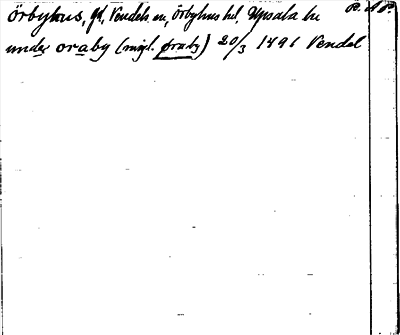 Örbyhus, gd, Vendels sn, Örbyhus hd, Upsala län P. A. P.
under oraby (mgl. öraby) 20/3 1491 Vendel